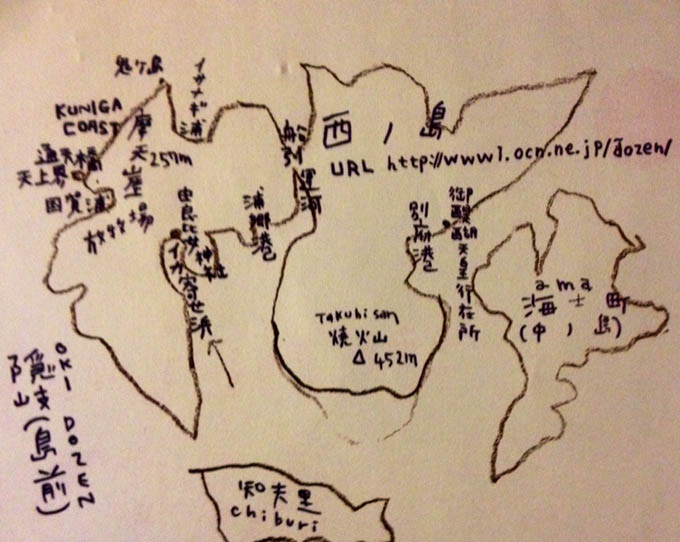 鬼ヶ島
イザナギ浦
KUNIGA
COAST
摩天崖
257m
通天橋
天上界
国賀浦
放牧場
船引運河
西ノ島
URL http://www1.ocn.ne.jp/dozen/
由良比女神社
イカ寄せ浜
浦郷港
別府港
御醍醐天皇行在所
ama
海士町
(中ノ島)
Takuhi san
焼火山
△ 452m
OKI DOZEN
隠岐(島前)
知夫里
chiburi